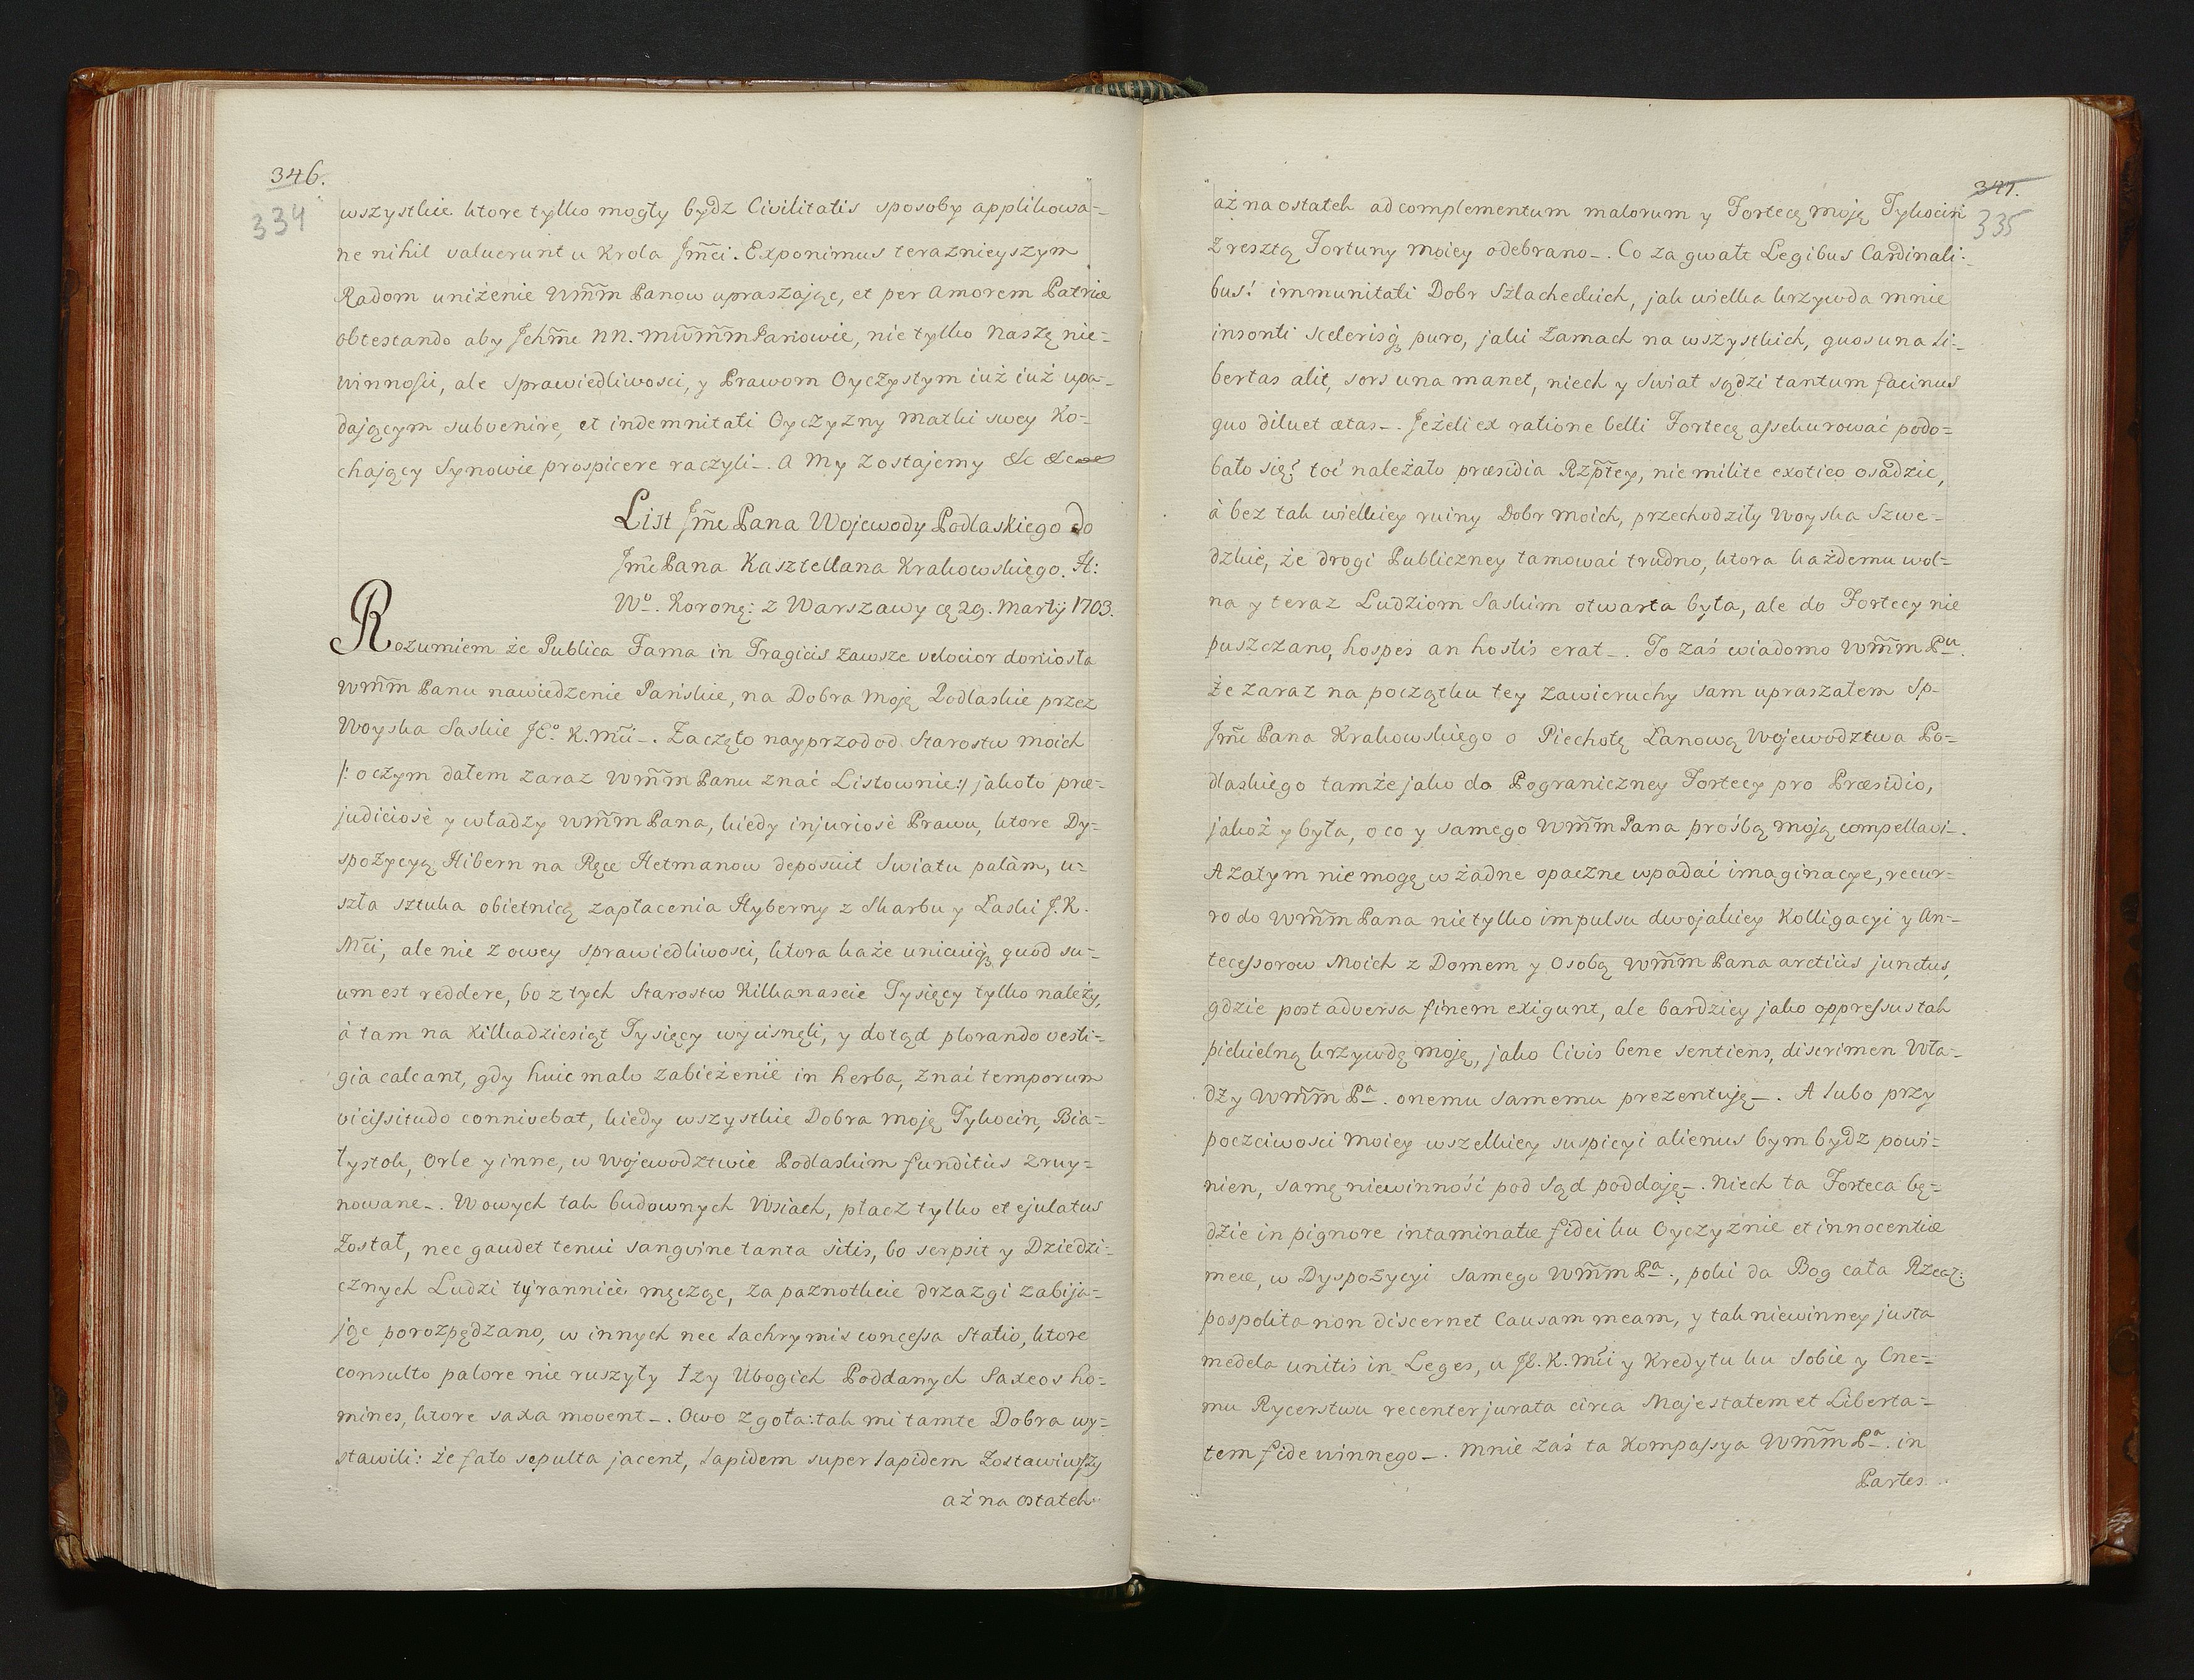 346.
334
wszystkie ktore tylko mogły bydz Civilitatis sposoby applikowa-
ne nihil valuerunt u Krola Jm̃ci. Exponimus terazniejszym
Radom uniżenie Wm̃m̃ Panow upraszając, et per amorem Patriæ
obtestando aby Jchm̃e nn. mw̃m̃m̃ Panowie, nie tylko Naszę nie-
winnośći, ale sprawiedliwosci, y Prawom Oyczystym iuż iuż upa-
dającym subvenire, et indemnitati Oyczyzny Matki swey Ko-
chający Synowie prospicere raczyli-. A My zostajemy &c &c
List Jm̃e Pana Wojewody Podlaskiego do
Jm̃e Pana Kasztellana Krakowskiego. H:
Wo. Koronę: z Warszawy dę 29. Martij 1703.
Rozumiem że Publica Fama in Tragicis zawsze velocior doniosła
Wm̃m̃ Panu nawiedzenie Pańskie, na Dobra Moję Podlaskie przez
Woyska Saskie JEo K. Mc̃i-. Zaczęto nayprzod od Starostw moich
/: o czym dałem zaraz Wm̃m̃ Panu znać Listownie:/ jakoto præ-
judiciosè y władzy Wm̃m̃ Pana, kiedy injuriosè Prawu, ktore Dy-
spozycyą Hibern na Ręce Hetmanow deposuit Swiatu palàm, u-
szła sztuka obietnicą zapłacenia Hyberny z Skarbu y Łaski J. K.
Mc̃i, ale nie z owey sprawiedliwosci, ktora każe unicuiq quod su-
um est reddere, bo z tych Starostw Kilkanascie Tysięcy tylko należy,
à tam na Kilkadziesiąt Tysięcy wycisnęli, y dotąd plorando vesti-
gia calcant, gdy huic malo zabieżenie in herba, znać temporum
vicissitudo connivebat, kiedy wszystkie Dobra moję Tykocin, Bia-
łystok, Orle y inne, w Wojewodztwie Podlaskim funditùs zruy-
nowane-. W owych tak budownych Wsiach, płacz tylko et ejulatus
został, nec gaudet tenui sangvine tanta sitis, bo serpsit y Dziedzi-
cznych Ludzi tyrannicè męcząc, za paznotkcie drzazgi zabija-
jąc porozpędzano, w innych nec lachrymis concessa statio, ktore
consulto palore nie ruszyły łzy Ubogich Poddanych Saxeos ho-
mines, ktore saxa movent-. Owo zgoła: tak mi tamte Dobra wy-
stawili: że fato sepulta jacent, lapidem super lapidem zostawiwszy
aż na ostatek
347.
335
aż na ostatek ad complementum malorum y Fortecę moję Tykocin
z resztą Fortuny moiey odebrano-. Co za gwałt Legibus Cardinali-
bus! immunitati Dobr Szlacheckich, jak wielka krzywda mnie
insonti scelerisq puro, jaki zamach na wszystkich, quos una li-
bertas alit, sors una manet, niech y Swiat sądzi tantum facinus
quo diluet ætas-. Jeżeli ex ratione belli Fortecę assekurować podo-
bało się? toć należało præsidia Rzptey, nie milite exotico osadzic,
à bez tak wielkiey ruiny Dobr moich, przechodziły Woyska Szwe-
dzkie, że drogi Publiczney tamować trudno, ktora każdemu wol-
na y teraz Ludziom Saskim otwarta była, ale do Fortecy nie
puszczano, hospes an hostis erat-. To zaś wiadomo Wm̃m̃ Pu.
że zaraz na początku tey zawieruchy sam upraszałem Sp-
Jm̃e Pana Krakowskiego o Piechotę Łanową Wojewodztwa Po-
dlaskiego tamże jako do Pograniczney Fortecy pro Præsidio,
jakoż y była, o co y samego Wm̃m̃ Pana proźbą moją compellavi-.
A zatym nie mogę w żadne opaczne wpadać imaginacye, recur-
ro do Wm̃m̃ Pana nie tylko impulsu dwojakiey Kolligacyi y An-
tecessorow Moich z Domem y Osobą Wm̃m̃ Pana arctiùs junctus,
gdzie post adversa finem exigunt, ale bardziey jako oppressus tak
piekielną krzywdę moję, jako Civis bene sentiens, discrimen Wła-
dzy Wm̃m̃ Pa. onemu samemu prezentuję-. A lubo przy
poczciwosci moiey wszelkiey suspicyi alienus bym bydz powi-
nien, samę niewinność pod Sąd poddaję-. Niech ta Forteca bę-
dzie in pignore intaminatæ fidei ku Oyczyznie et innocentiæ
meæ, w Dyspozycyi samego Wm̃m̃ Pa., poki da Bog cała Rzecz:
pospolita non discernet Causam meam, y tak niewinney justa
medela unitis in Leges, u JE. K. Mc̃i y Kredytu ku sobie y Cne-
mu Rycerstwu recenter jurata circa Majestatem et Liberta-
tem fide winnego-. Mnie zaś ta Kompassya Wm̃m̃ Pa. in
Partes